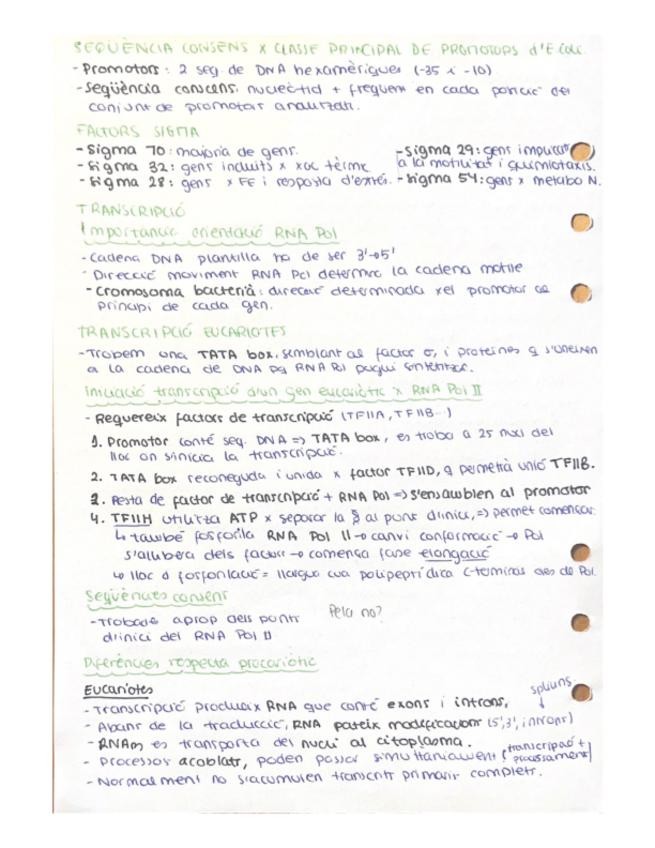 SEQÜÈNCIA CONSENS X CLASSE PRINCIPAL DE PROMOTORS d'E.coli.
- Promotors: 2 seq. de DNA hexamèriques (-35 i -10)
- Seqüència consens: nucleòtid + freqüent en cada posició del
conjunt de promotors analitzats.
FACTORS SIGMA
- Sigma 70: majoria de gens.
- Sigma 32: gens induïts x xoc tèrmic
- Sigma 28: gens x FE i resposta d'estrés.
- Sigma 29: gens implicats
a la motilitat i quimiotaxis.
- Sigma 54: gens x metabo N.
TRANSCRIPCIÓ
Importància orientació RNA Pol
- Cadena DNA plantilla ha de ser 3'→5'
- Direcció moviment RNA Pol determina la cadena motlle
- Cromosoma bacterià: direcció determinada xel promotor al
principi de cada gen.
TRANSCRIPCIÓ EUCARIOTES
- Trobem una TATA box, semblant al factor σ, i proteïnes q s'uneixen
a la cadena de DNA pq RNA Pol pugui sintetitzar.
Iniciació transcripció d'un gen eucariòtic x RNA Pol II
- Requereix factors de transcripció (TFIIA, TFIIB...)
1. Promotor conté seq. DNA => TATA box, es troba a 25 nucl del
lloc on s'inicia la transcripció.
2. TATA box reconeguda i unida x factor TFIID, q permetrà unió TFIIB.
3. Resta de factor de transcripció + RNA Pol => s'ensamblen al promotor
4. TFIIH utilitza ATP x separar la al punt d'inici, => permet començar.
↳ també fosforila RNA Pol II → canvi conformació → Pol
s'allibera dels factors → comença fase elongació
↳ lloc d fosforilació = llarga cua polipeptídica C-terminal des de Pol.
Seqüències consens
- Trobades aprop dels punts
d'inici del RNA Pol II
Pela no?
Diferències respecta procariòtic
Eucariotes
- Transcripció produeix RNA que conté exons i introns.
splicing
↓
- Abans de la traducció, RNA pateix modificacions (5',3', introns)
- RNAm es transporta del nucli al citoplasma.
- Processos acoblats, poden passar simultàniament (transcripció +
processament)
- Normalment no s'acumulen transcrits primaris complets.